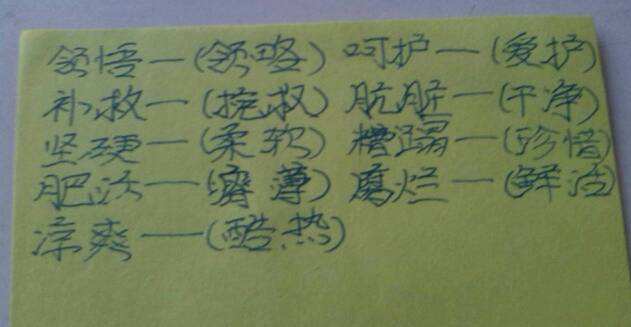 领悟—(领略) 呵护—(爱护)
补救—(挽救) 肮脏—(干净)
坚硬—(柔软) 糟蹋—(珍惜)
肥沃—(瘠薄) 腐烂—(鲜活)
凉爽—(酷热)